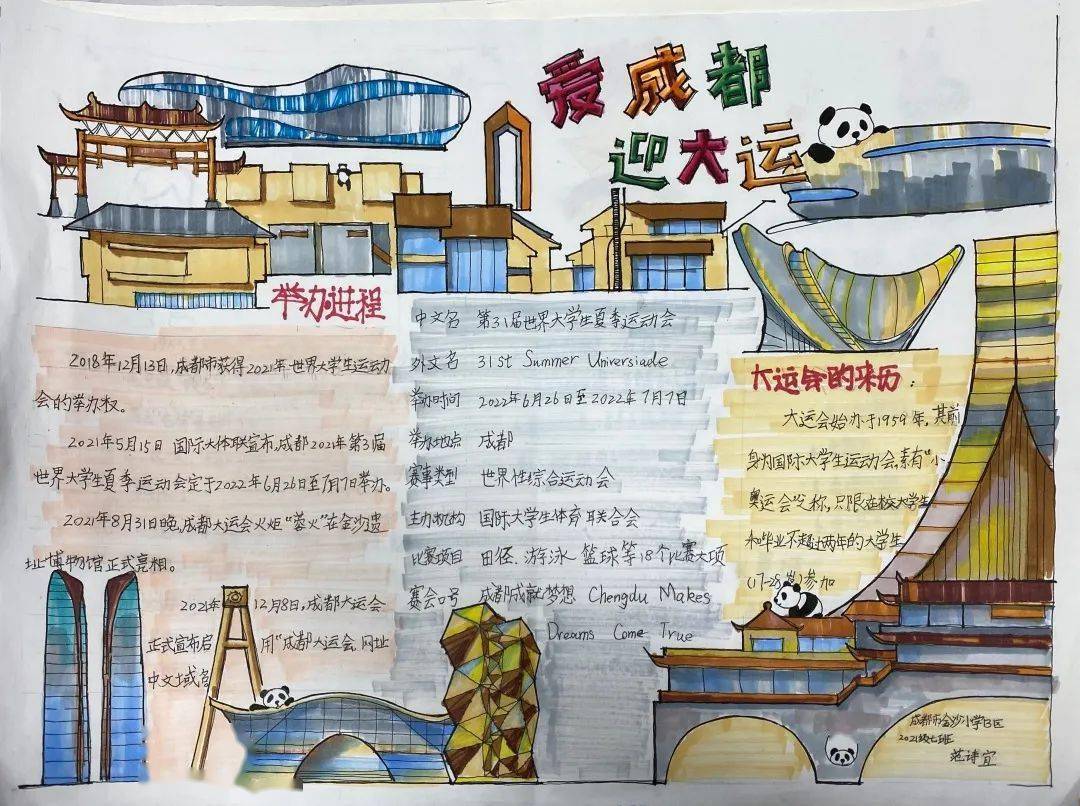 爱成都
迎大运
举办进程
2018年12月13日,成都市获得2021年世界大学生运动
会的举办权。
2021年5月15日 国际大体联宣布,成都2021年第31届
世界大学生夏季运动会定于2022年6月26日至7月7日举办。
2021年8月31日晚,成都大运会火炬“蓉火”在金沙遗
址博物馆正式亮相。
2021年12月8日,成都大运会
正式宣布启用“成都大运会.网址
中文域名
中文名 第31届世界大学生夏季运动会
外文名 31st Summer Universiade
举办时间 2022年6月26日至2022年7月7日
举办地点 成都
赛事类型 世界性综合运动会
主办机构 国际大学生体育联合会
比赛项目 田径、游泳、篮球等18个比赛大项
赛会口号 成都成就梦想 Chengdu Makes
Dreams Come True
大运会的来历:
大运会始办于1959年,其前
身为国际大学生运动会,素有“小
奥运会”之称,只限在校大学生
和毕业不超过两年的大学生
(17-28岁)参加
成都市金沙小学B区
2021级七班
范诗宜